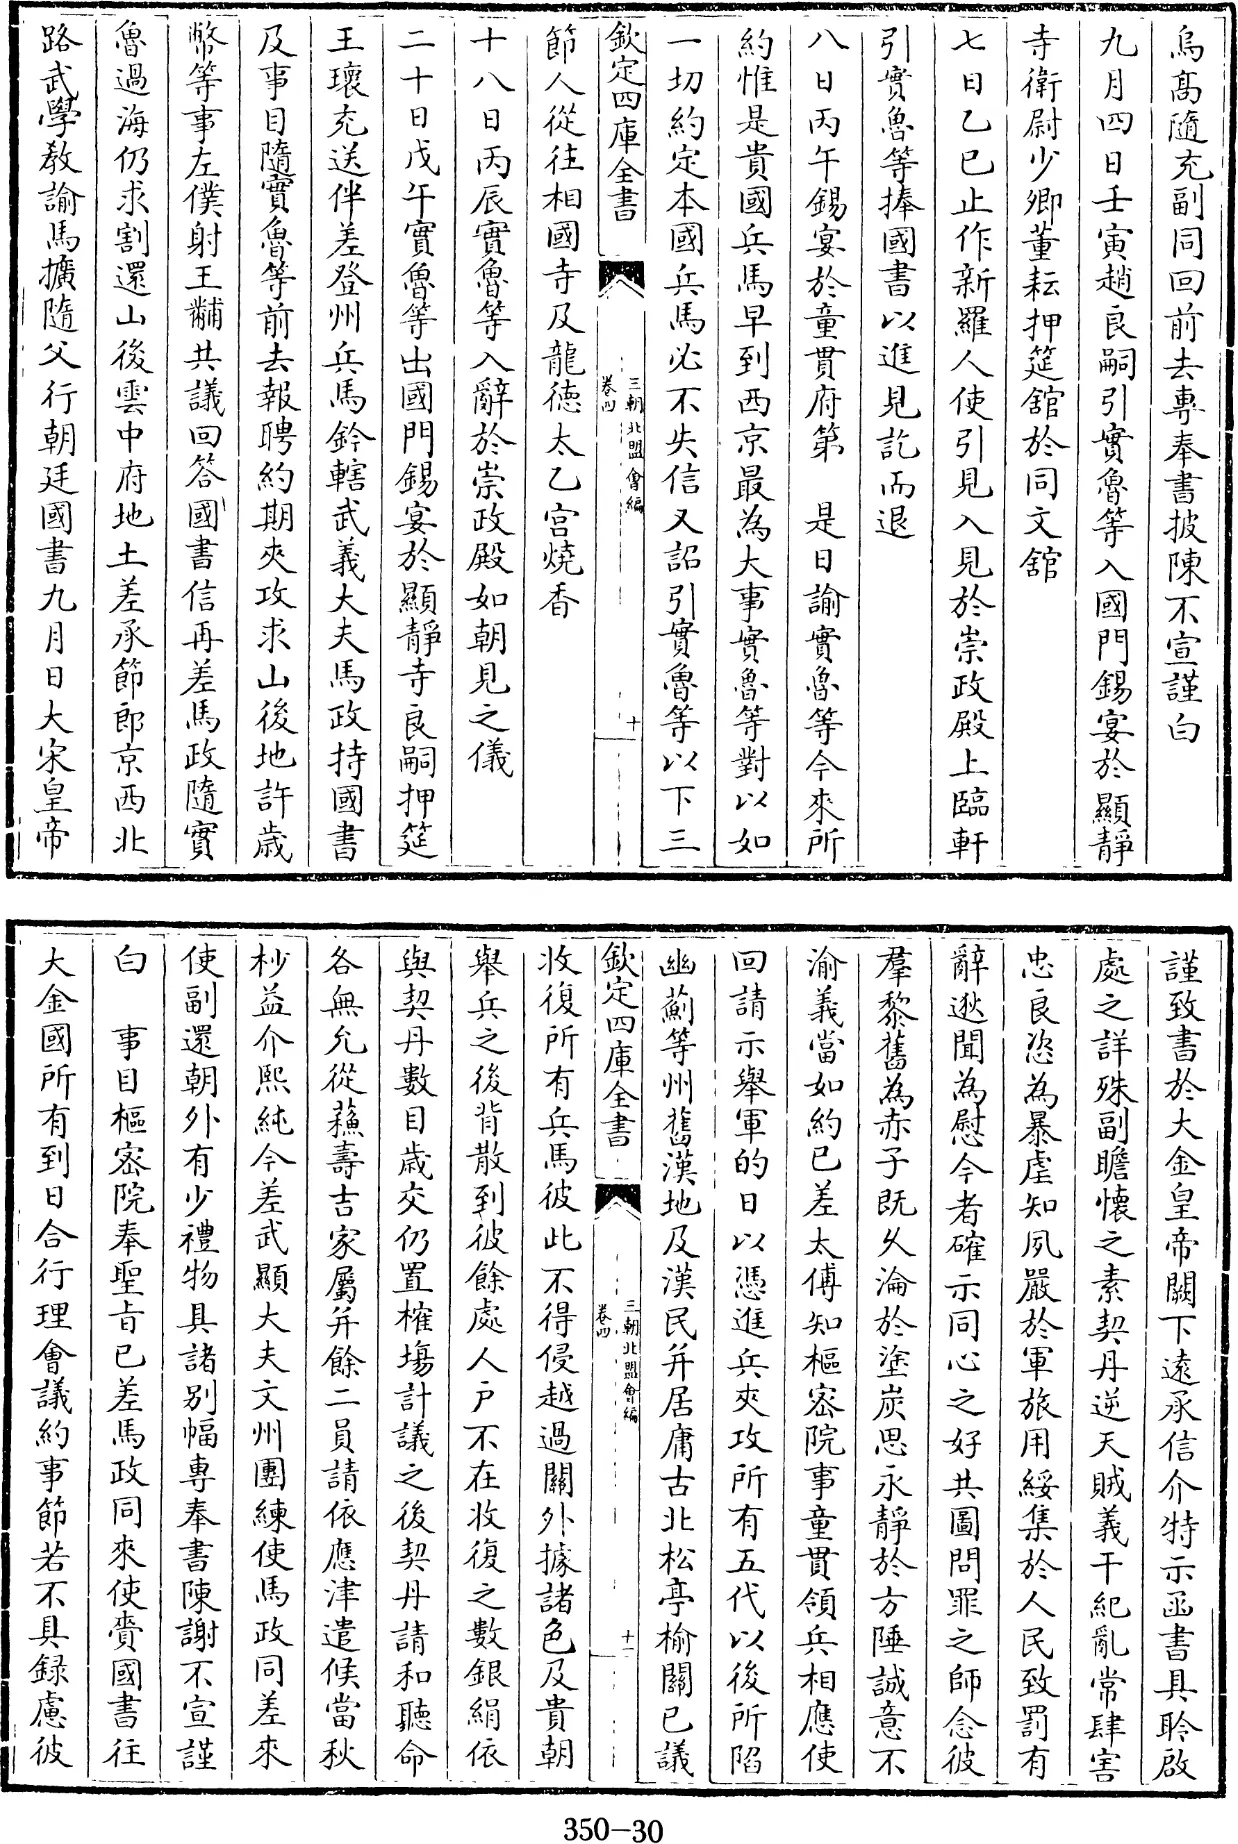 烏髙隨充副同回前去專奉書披陳不宣謹白
九月四日壬寅趙良嗣引實魯等入國門錫宴於顯靜
寺衛尉少卿董耘押筵舘於同文舘
七日乙巳止作新羅人使引見入見於崇政殿上臨軒
引實魯等捧國書以進見訖而退
八日丙午錫宴於童貫府第　是日諭實魯等今來所
約惟是貴國兵馬早到西京最為大事實魯等對以如
一切約定本國兵馬必不失信又詔引實魯等以下三
欽定四庫全書
三朝北盟會編
卷四
十
節人從往相國寺及龍德太乙宫燒香
十八日丙辰實魯等入辭於崇政殿如朝見之儀
二十日戊午實魯等出國門錫宴於顯靜寺良嗣押筵
王瓌充送伴差登州兵馬鈐轄武義大夫馬政持國書
及事目隨實魯等前去報聘約期夾攻求山後地許歳
幣等事左僕射王黼共議回答國書信再差馬政隨實
魯過海仍求割還山後雲中府地土差承節郎京西北
路武學教諭馬擴隨父行朝廷國書九月日大宋皇帝
謹致書於大金皇帝闕下逺承信介特示函書具聆啟
處之詳殊副瞻懐之素契丹逆天賊義干紀亂常肆害
忠良恣為暴虐知夙嚴於軍旅用綏集於人民致罰有
辭逖聞為慰今者確示同心之好共圖問罪之師念彼
羣黎舊為赤子既乆淪於塗炭思永靜於方陲誠意不
渝義當如約已差太傅知樞宻院事童貫領兵相應使
回請示舉軍的日以憑進兵夾攻所有五代以後所陷
幽薊等州舊漢地及漢民并居庸古北松亭榆關已議
欽定四庫全書
三朝北盟會編
卷四
十一
收復所有兵馬彼此不得侵越過關外據諸色及貴朝
舉兵之後背散到彼餘處人户不在收復之數銀絹依
與契丹數目歳交仍置榷塲計議之後契丹請和聽命
各無允從蘓壽吉家屬并餘二員請依應津遣候當秋
杪益介熙純今差武顯大夫文州團練使馬政同差來
使副還朝外有少禮物具諸别幅專奉書陳謝不宣謹
白　事目樞宻院奉聖㫖已差馬政同來使賫國書往
大金國所有到日合行理會議約事節若不具録慮彼
350-30